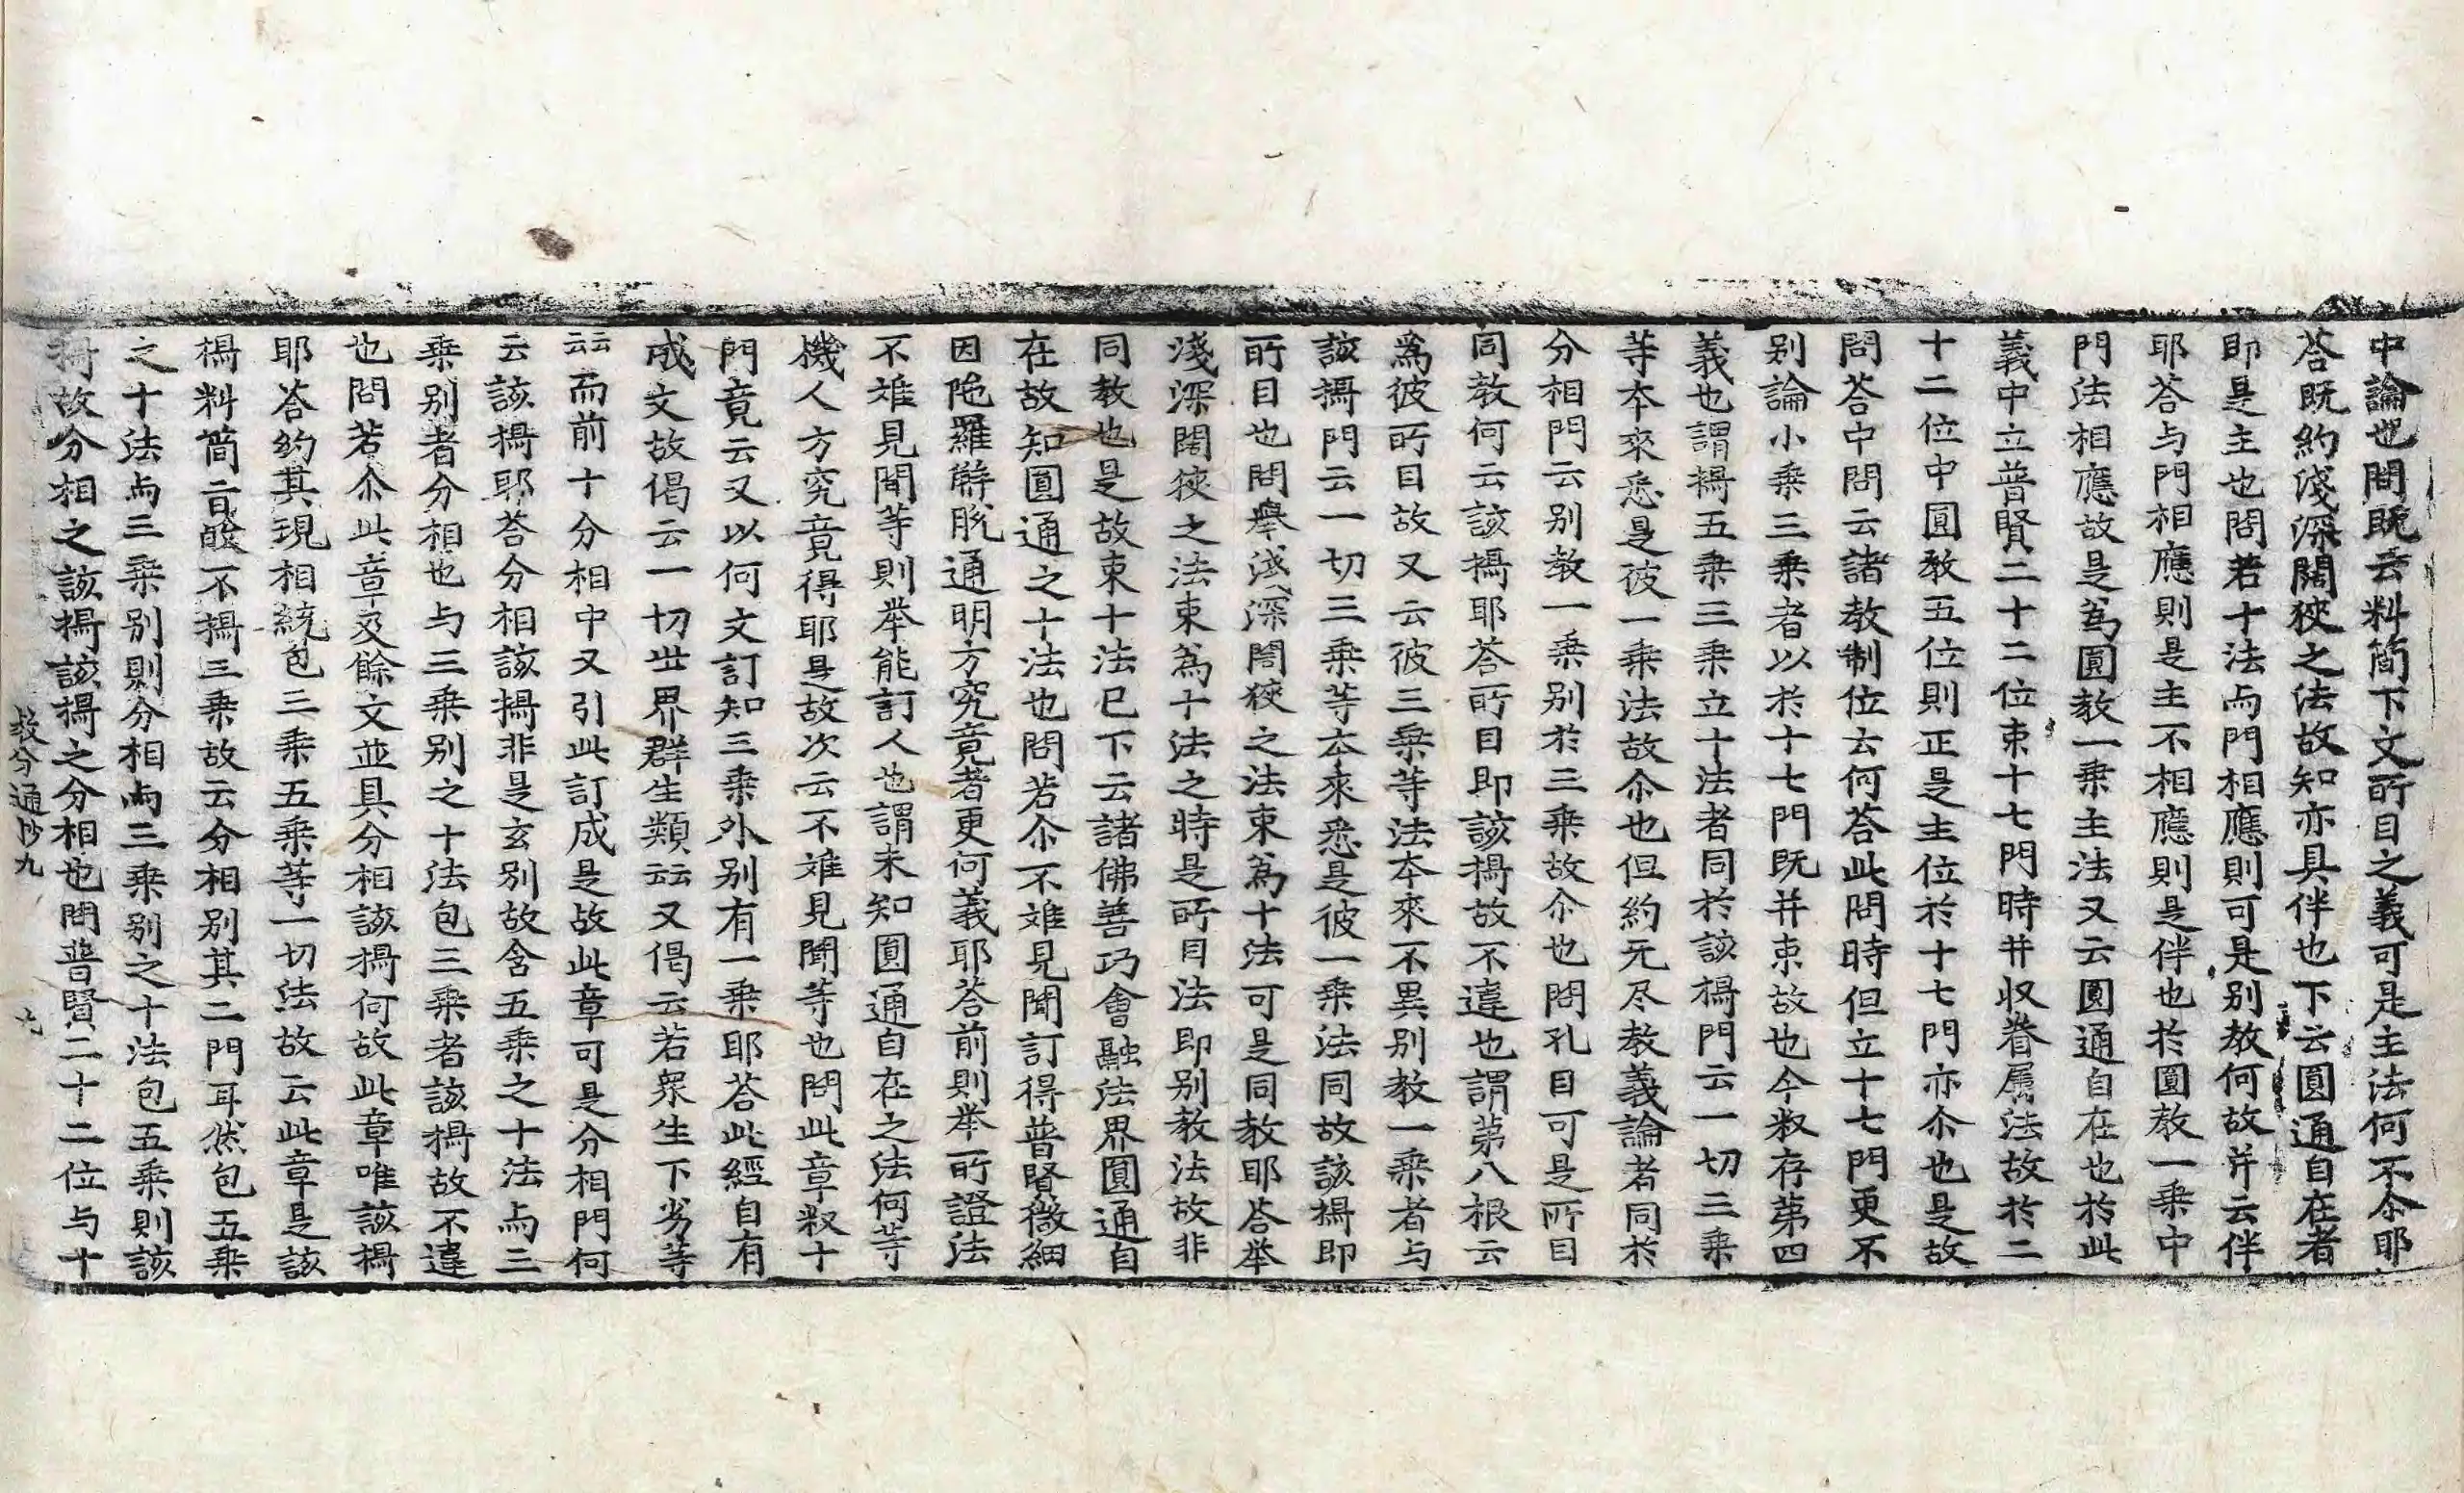 中論也問旣云料簡下文所目之義可是主法何不尒耶
荅旣約淺深闊狹之法故知亦具伴也下云圓通自在者
即是主也問若十法而門相應則可是別敎何故并云伴
耶荅与門相應則是主不相應則是伴也於圓敎一乘中
門法相應故是爲圓敎一乘主法又云圓通自在也於此
義中立普賢二十二位束十七門時并収眷属法故於二
十二位中圓敎五位則正是主位於十七門亦尒也是故
問荅中問云諸敎制位云何荅此問時但立十七門更不
別論小乘三乘者以於十七門旣并束故也今叙存第四
義也謂攝五乘三乘立十法者同於該攝門云一切三乘
等夲來悉是彼一乘法故尒也但約无尽敎義論者同於
分相門云別敎一乘別於三乘故尒也問孔目可是所目
同敎何云該攝耶荅所目即該攝故不違也謂第八根云
爲彼所目故又云彼三乘等法夲來不異別敎一乘者与
該攝門云一切三乘等夲來悉是彼一乘法同故該攝即
所目也問擧淺深闊狹之法束爲十法可是同敎耶荅举
淺深闊狹之法束爲十法之時是所目法即別敎法故非
同敎也是故束十法已下云諸佛善巧會融法界圓通自
在故知圓通之十法也問若尒不雖見聞訂得普賢微細
因陁羅解脫通明方究竟者更何義耶荅前則举所證法
不雖見聞等則举能訂人也謂未知圓通自在之法何等
機人方究竟得耶是故次云不雖見聞等也問此章叙十
門竟云又以何文訂知三乘外別有一乘耶荅此經自有
成文故偈云一切世界群生類云云又偈云若衆生下劣等
云云而前十分相中又引此訂成是故此章可是分相門何
云該攝耶荅分相該攝非是玄別故含五乘之十法而三
乘別者分相也与三乘別之十法包三乘者該攝故不違
也問若尒此章及餘文並具分相該攝何故此章唯該攝
耶荅約其現相統包三乘五乘等一切法故云此章是該
攝料簡言 不攝三乘故云分相別其二門耳然包五乘
之十法而三乘別則分相而三乘別之十法包五乘則該
攝故分相之該攝該攝之分相也問普賢二十二位与十
敎分通抄九